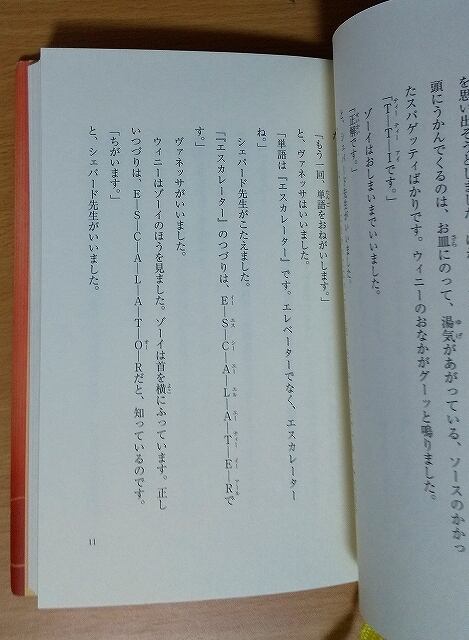 を思い出
頭にうかんでくるのは、お皿にのって、湯気があがっている、ソースのかかっ
たスパゲッティばかりです。ウィニーのおなかがグーッと鳴りました。
「T―T―Iです。」
ゾーイはおしまいまでいいました。
「正解です。」
と、シェパード先生がいいました。
「もう一回、単語をおねがいします。」
と、ヴァネッサはいいました。
「単語は『エスカレーター』です。エレベーターでなく、エスカレーター
ね。」
シェパード先生がこたえました。
「『エスカレーター』のつづりは、E―S―C―A―L―A―T―E―Rで
す。」
ヴァネッサがいいました。
ウィニーはゾーイのほうを見ました。ゾーイは首を横にふっています。正し
いつづりは、E―S―C―A―L―A―T―O―Rだと、知っているのです。
「ちがいます。」
と、シェパード先生がいいました。
11